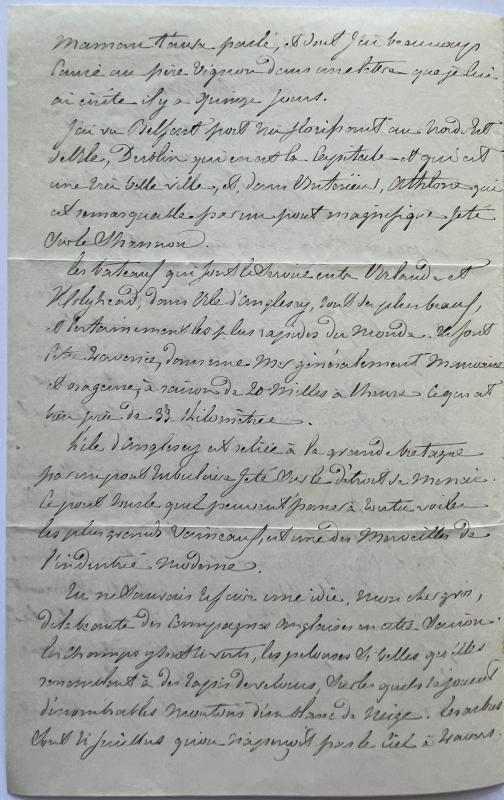 maman t'aura parlé, et dont j'ai beaucoup
causé au père Vignon dans une lettre que je lui
ai écrite il y a quinze jours.
J'ai vu Belfast port très florissant au Nord Est
de l'Ile, Dublin qui en est la Capitale et qui est
une très belle ville, et, dans l'intérieur, Athlone qui
est remarquable par un pont magnifique jeté
sur le Shannon.
Les bateaux qui font le Service entre l'Irlande et
Holyhead, dans l'Ile d'Anglesey, sont les plus beaux,
et certainement les plus rapides du monde. Ils font
cette traversée, dans une Mer généralement Mauvaise
et orageuse, à raison de 20 Milles à l'heure ce qui est
bien près de 33 Kilomètres.
L'île d'Anglesey est reliée à la grande bretagne
par un pont tubulaire jeté sur le détroit de Menai.
Ce pont sous lequel peuvent passer à toutes voiles
les plus grands Vaisseaux, est une des Merveilles de
l'industrie moderne.
Tu ne saurais te faire une idée, mon cher gros,
de la beauté des Campagnes anglaises en cette Saison.
les champs y sont si verts, les pelouses si belles qu'elles
ressemblent à des tapis de velours, sur lesquels se jouent
d'innombrables moutons d'un blanc de neige. Les arbres
sont si feuillus qu'on n'aperçoit pas le Ciel à travers.